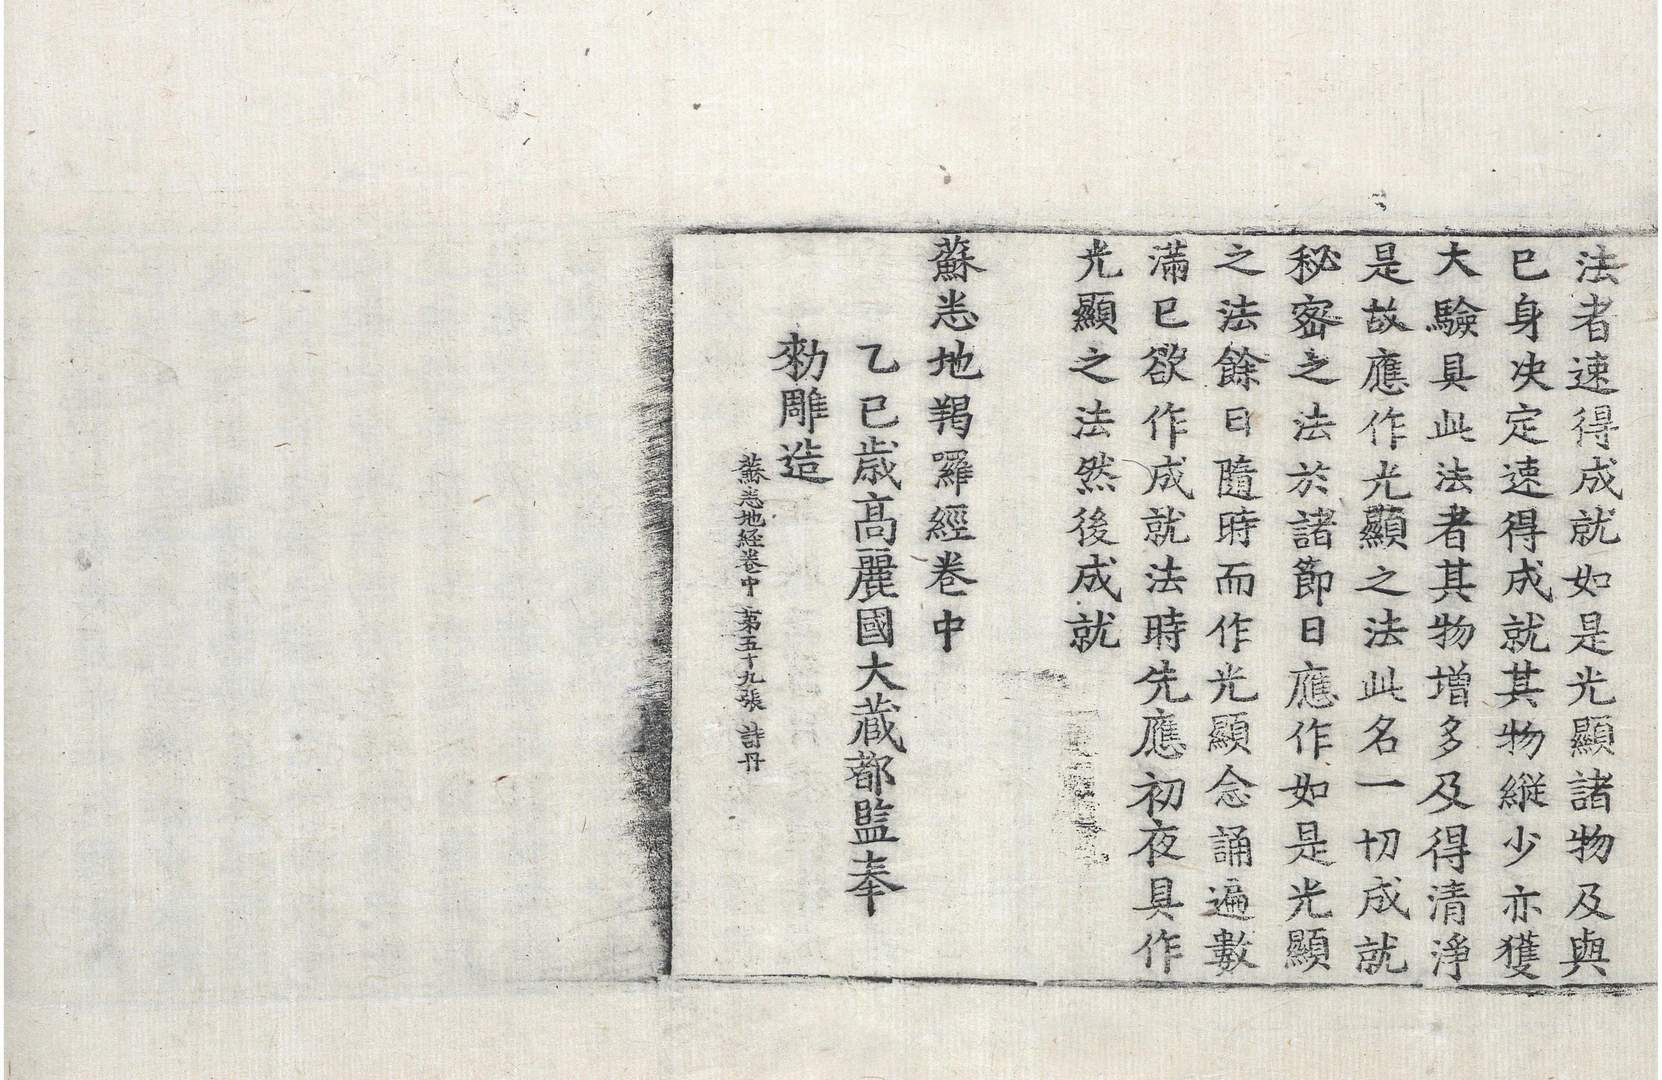 法者速得成就如是光顯諸物及與
已身决定速得成就其物縱少亦獲
大驗具此法者其物增多及得清淨
是故應作光顯之法此名一切成就
秘密之法於諸節日應作如是光顯
之法餘日隨時而作光顯念誦遍數
滿已欲作成就法時先應初夜具作
光顯之法然後成就
蘇悉地羯囉經卷中
乙巳歳高麗國大藏都監奉
勑雕造
蘇悉地経卷中 第五十九張 詩丹